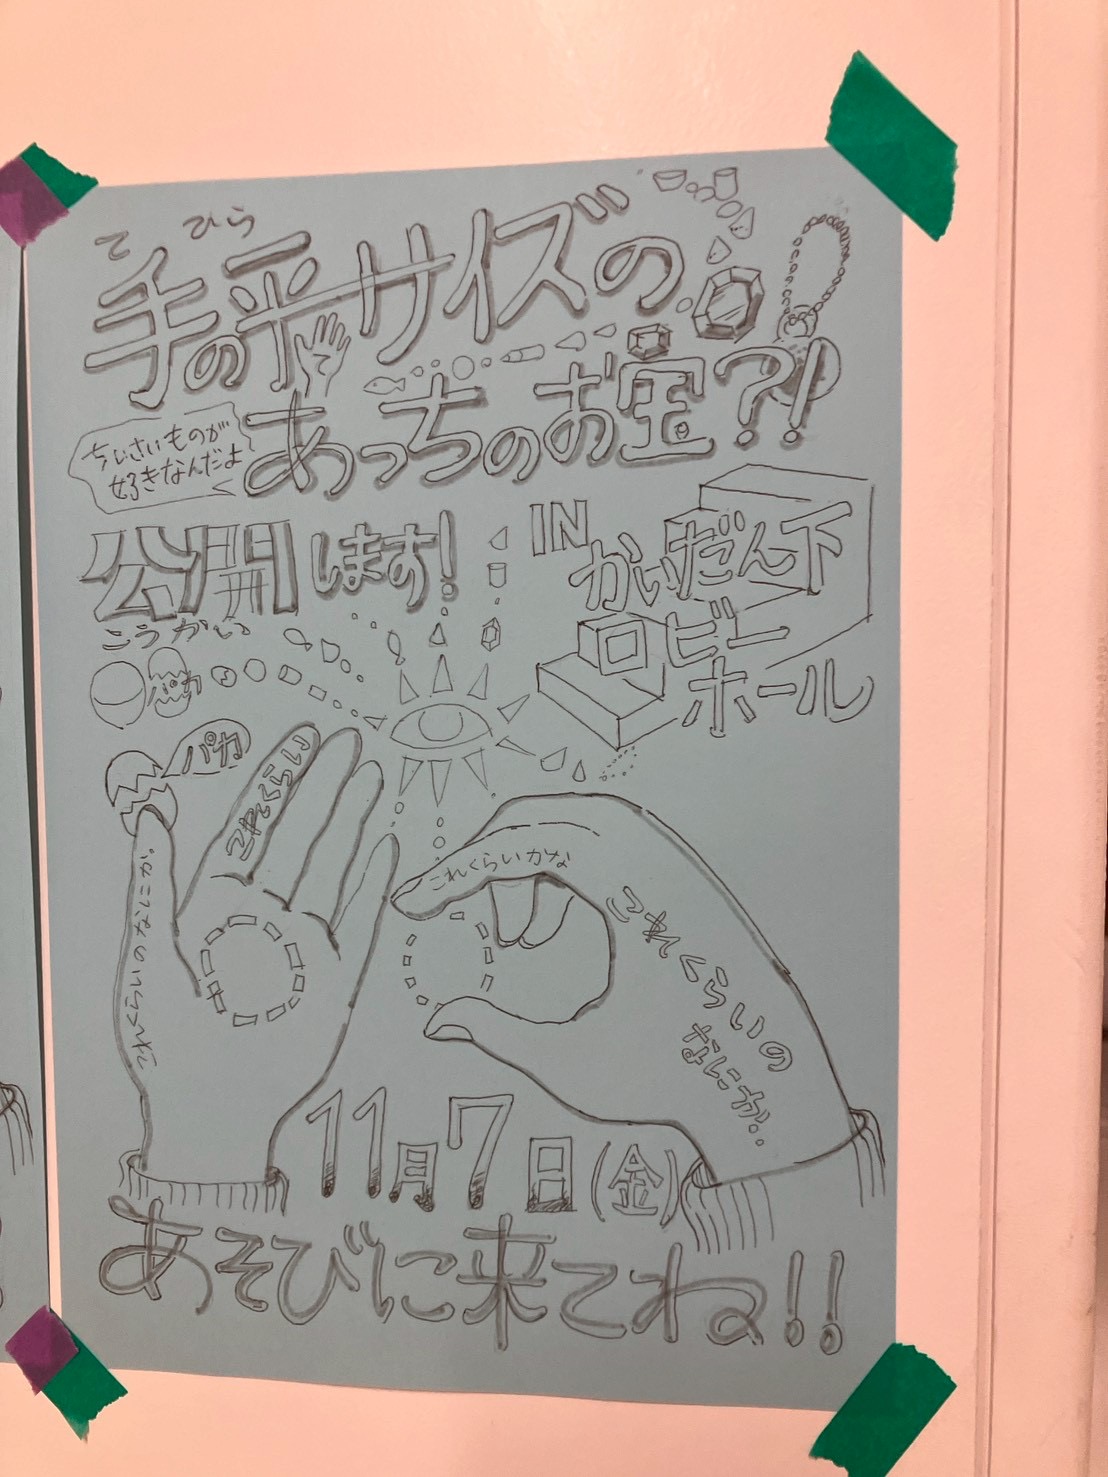 て ひら
手の平サイズの
あっちのお宝?!
ちいさいものが
好きなんだよ
公開します!
こうかい
IN
かいだん下
ロビー
ホール
パカ
パカ
これくらい
これくらいのなにか"
これくらいかな
これくらいの
なにか..
11月7日(金)
あそびに来てね!!